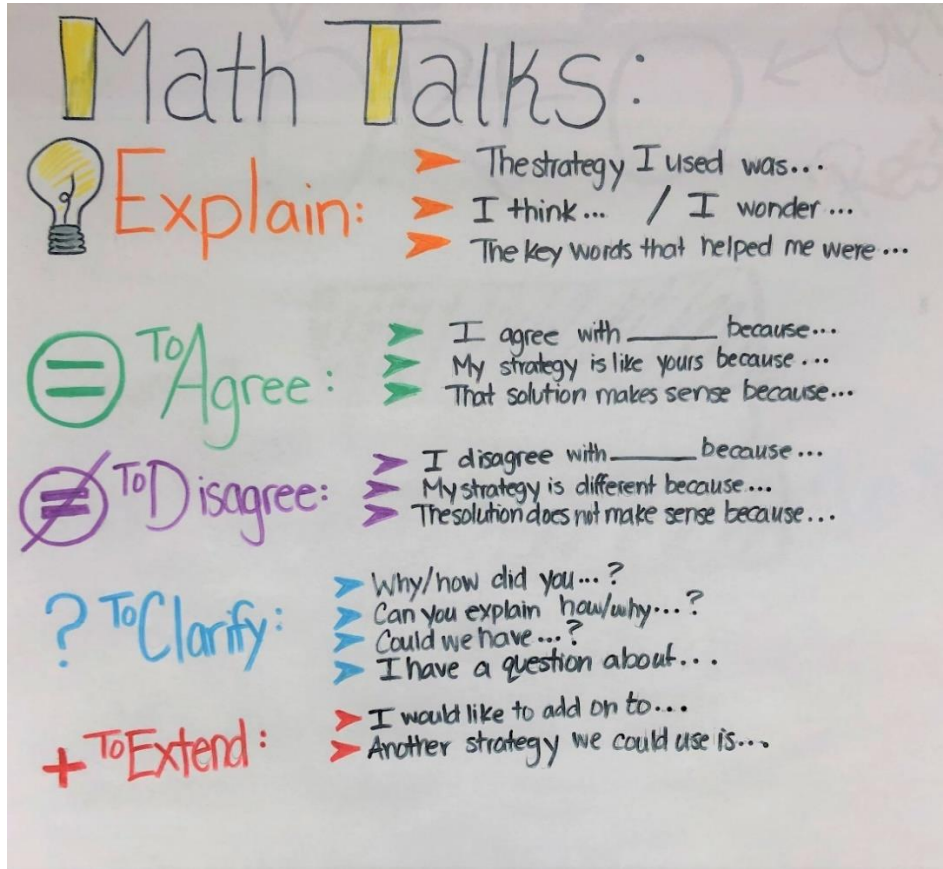 Math Talks:
Explain:
The strategy I used was...
I think... / I wonder...
The key words that helped me were...
To Agree:
I agree with ______ because...
My strategy is like yours because...
That solution makes sense because...
To Disagree:
I disagree with ______ because...
My strategy is different because...
The solution does not make sense because...
? To Clarify:
Why/how did you...?
Can you explain how/why...?
Could we have...?
I have a question about...
+ To Extend:
I would like to add on to...
Another strategy we could use is...